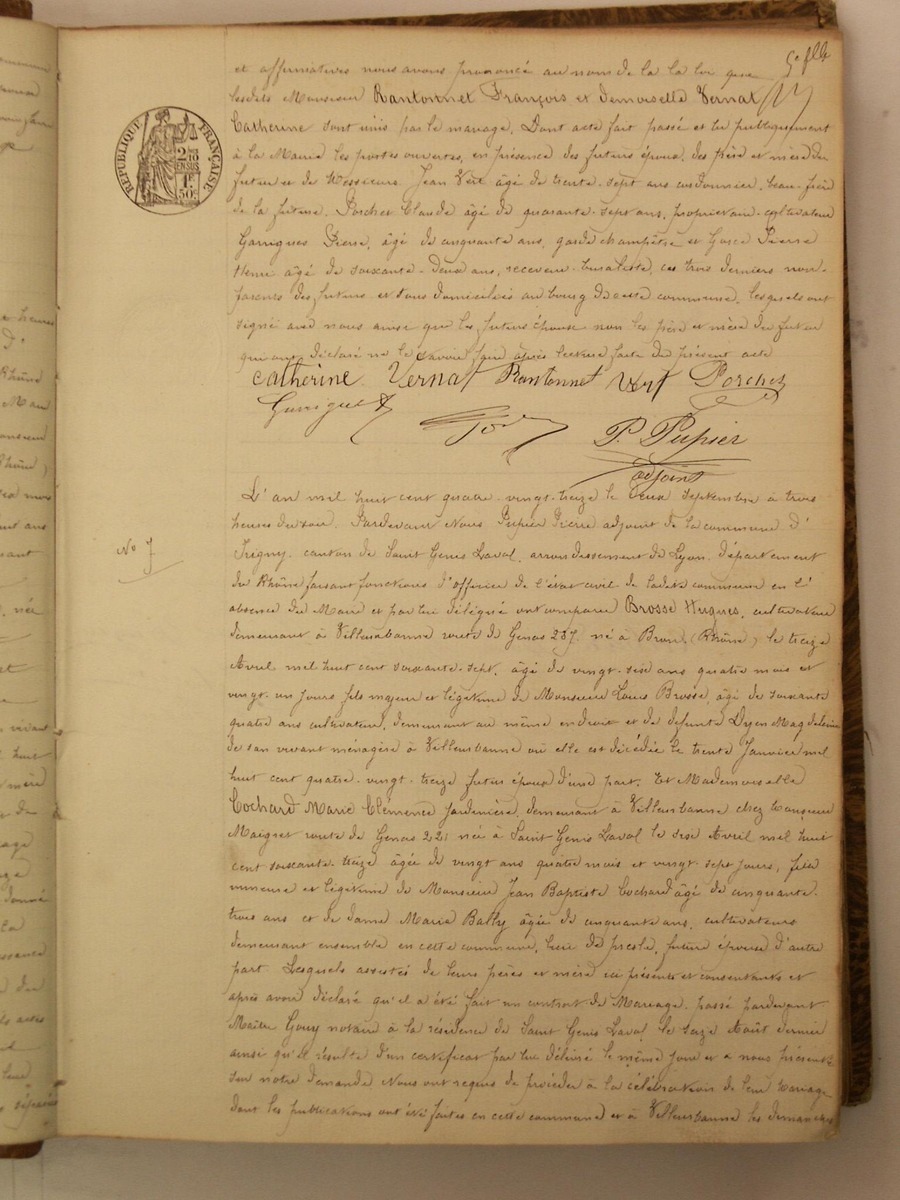 5e flt
RÉPUBLIQUE FRANÇAISE
2 10mes
EN SUS
1F
50c
et affirmatives nous avons prononcé au nom de la la loi que
lesdits Monsieur Rantonnet François et demoiselle Vernat
Catherine sont unis par le mariage. Dont acte fait passé et lu publiquement
à la Mairie les portes ouvertes, en présence des futurs époux, des père et mère du
futur et de Messieurs Jean Vert âgé de trente-sept ans cordonnier, beau-frère
de la future, Porchet Claude âgé de quarante-sept ans, propriétaire-cultivateur
Garrigues Pierre, âgé de cinquante ans, garde champêtre et Pierre
Henri âgé de soixante-deux ans, receveur buraliste, ces trois derniers non-
parents des futurs et tous domiciliés au bourg de cette commune, lesquels ont
signé avec nous ainsi que les futurs épouse non les père et mère du futur
qui ont déclaré ne le savoir faire après lecture faite du présent acte
Catherine Vernat Rantonnet Vert Porchet
Garrigues
P. Pupier
adjoint
No 7
L'an mil huit cent quatre-vingt-treize le deux septembre à trois
heures du soir. Pardevant Nous Pupier Pierre adjoint de la commune d'
Irigny, canton de Saint Genis Laval, arrondissement de Lyon, département
du Rhône faisant fonctions d'officier de l'état civil de ladite commune en l'
absence du Maire et par lui délégué ont comparu Brosse Hugues, cultivateur
demeurant à Villeurbanne route de Genas 237, né à Bron (Rhône) le treize
Avril mil huit cent soixante-sept, âgé de vingt-six ans quatre mois et
vingt-un jours fils majeur et légitime de Monsieur Louis Brosse, âgé de soixante
quatre ans cultivateur, demeurant au même endroit et de défunte Magdeleine
de son vivant ménagère à Villeurbanne où elle est décédée le trente Janvier mil
huit cent quatre-vingt-treize futur époux d'une part. Et Mademoiselle
Cochard Marie Clémence Jardinière, demeurant à Villeurbanne chez Monsieur
Maigret route de Genas 221 née à Saint Genis Laval le six Avril mil huit
cent soixante-treize âgée de vingt ans quatre mois et vingt-sept jours, fille
mineure et légitime de Monsieur Jean Baptiste Cochard âgé de cinquante-
trois ans et de dame Marie Bally âgée de cinquante ans, cultivateurs
demeurant ensemble en cette commune, lieu de future épouse d'autre
part. Lesquels assistés de leurs pères et mère ici présents et consentants et
après avoir déclaré qu'il a été fait un contrat de Mariage, passé pardevant
Maître notaire à la résidence de Saint Genis Laval le seize Août dernier
ainsi qu'il résulte d'un certificat par lui délivré le même jour et a nous présenté
sur notre demande Nous ont requis de procéder à la célébration de leur mariage
dont les publications ont été faites en cette commune et à Villeurbanne les dimanches